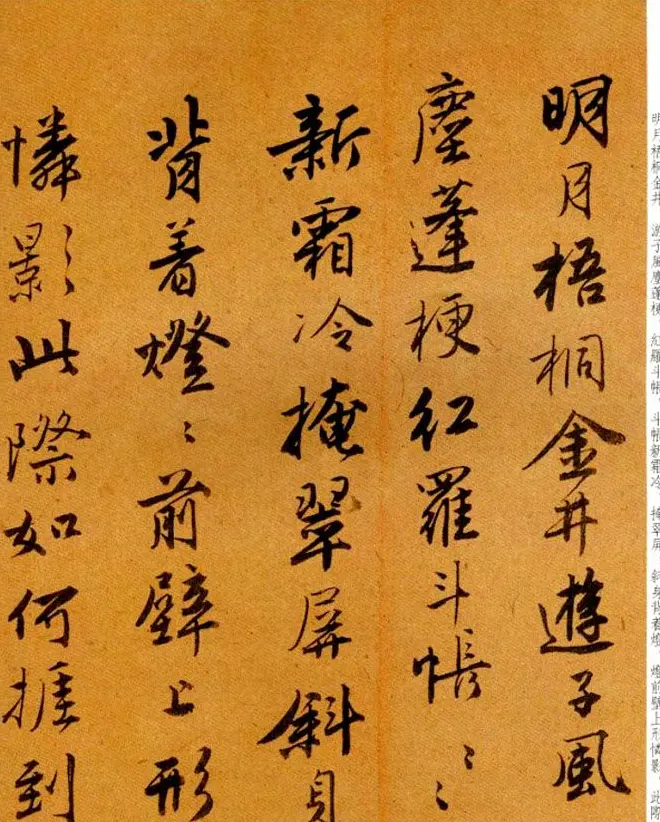 明月梧桐金井遊子風
塵蓬梗紅羅斗帳〻〻
新霜冷掩翠屏斜身
背着燈〻前壁上形
憐影〻此際如何捱到
明月梧桐金井 游子風塵蓬梗 紅羅斗帳，斗帳新霜冷 掩翠屏 斜身背着燈，燈前壁上形憐影，此際